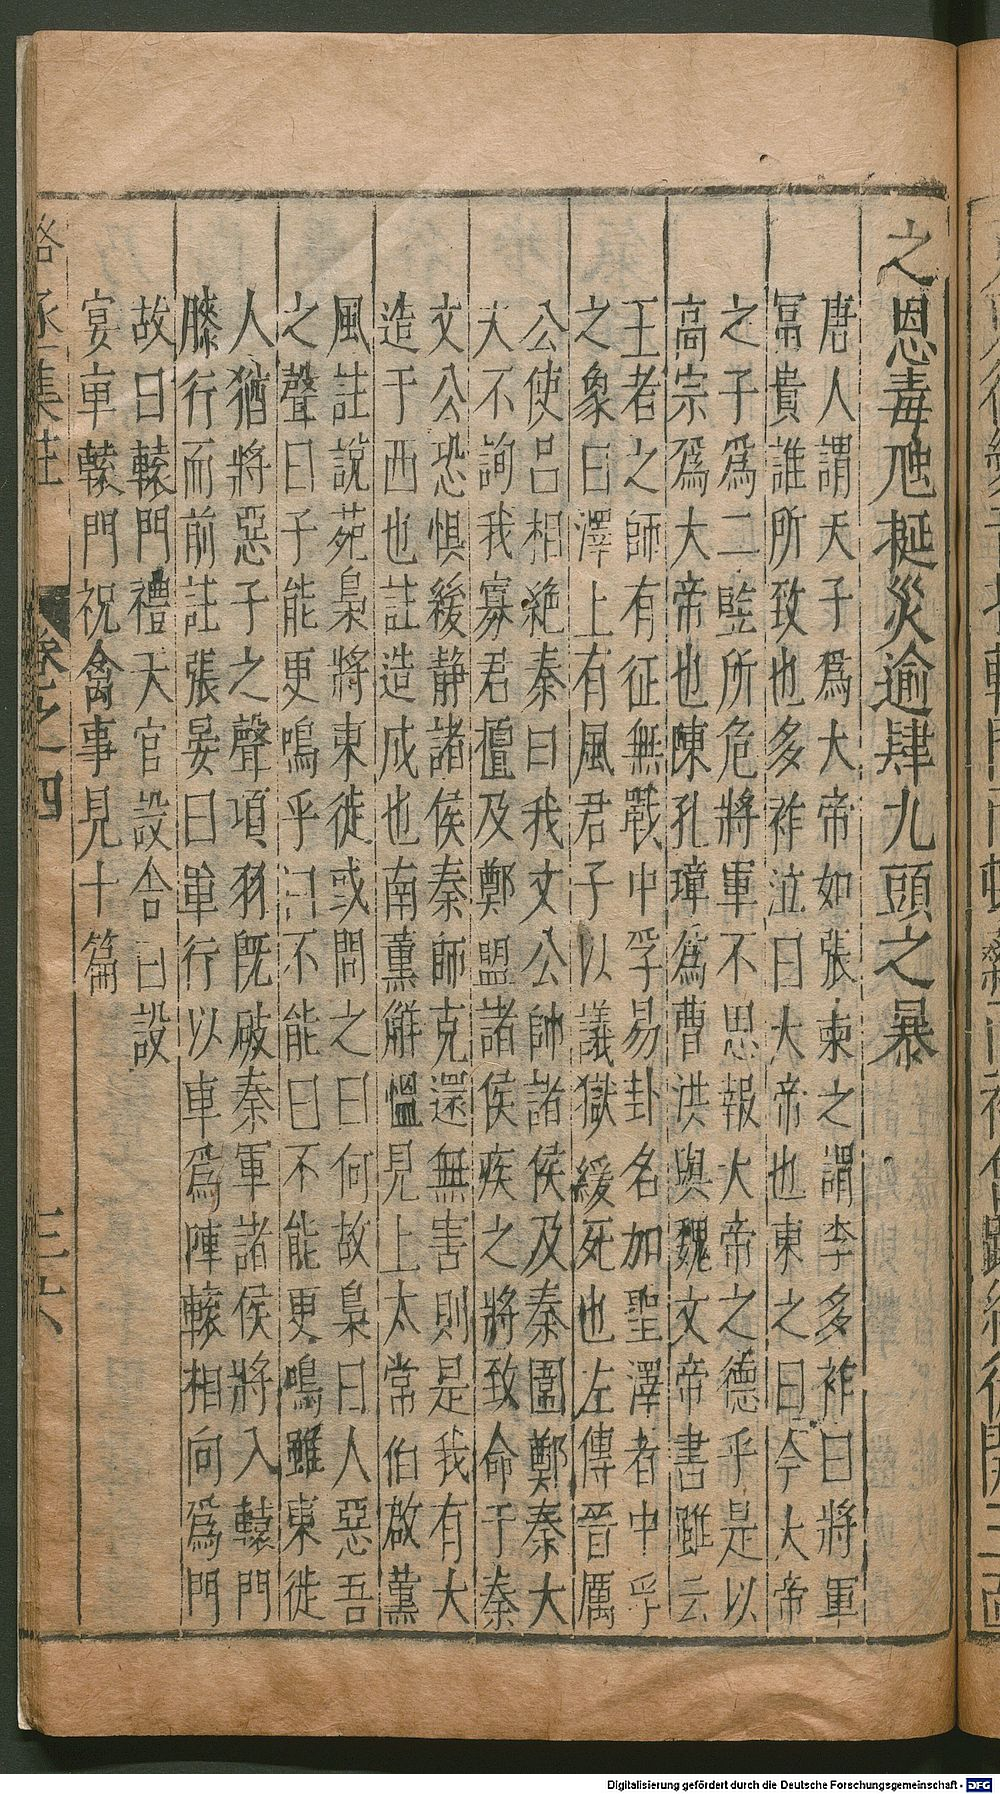 之恩毒虺挺災逾肆九頭之暴
唐人謂天子爲大帝如張柬之謂李多祚曰將軍
冨貴誰所致也多祚泣曰大帝也東之曰今大帝
之子爲二竪所危將軍不思報大帝之德乎是以
高宗爲大帝也陳孔璋爲曹洪與魏文帝書雖云
王者之師有征無戰中孚易卦名加聖澤者中孚
之象曰澤上有風君子以議獄緩死也左傳晉厲
公使吕相絶秦曰我文公帥諸侯及秦圍鄭秦大
夫不詢我寡君擅及鄭盟諸侯疾之將致命于秦
文公恐惧緩静諸侯秦師克還無害則是我有大
造于西也註造成也南薰解愠見上太常伯啟薰
風註說苑梟將東徙或問之曰何故梟曰人惡吾
之聲曰子能更鳴乎曰不能曰不能更鳴雖東徙
人猶將惡子之聲項羽旣破秦軍諸侯將入轅門
膝行而前註張晏曰軍行以車爲陣轅相向爲門
故曰轅門禮天官設舎曰設
宴車轅門祝禽事見十篇
啓集註
卷之四
三六
Digitalisierung gefördert durch die Deutsche Forschungsgemeinschaft - DFG